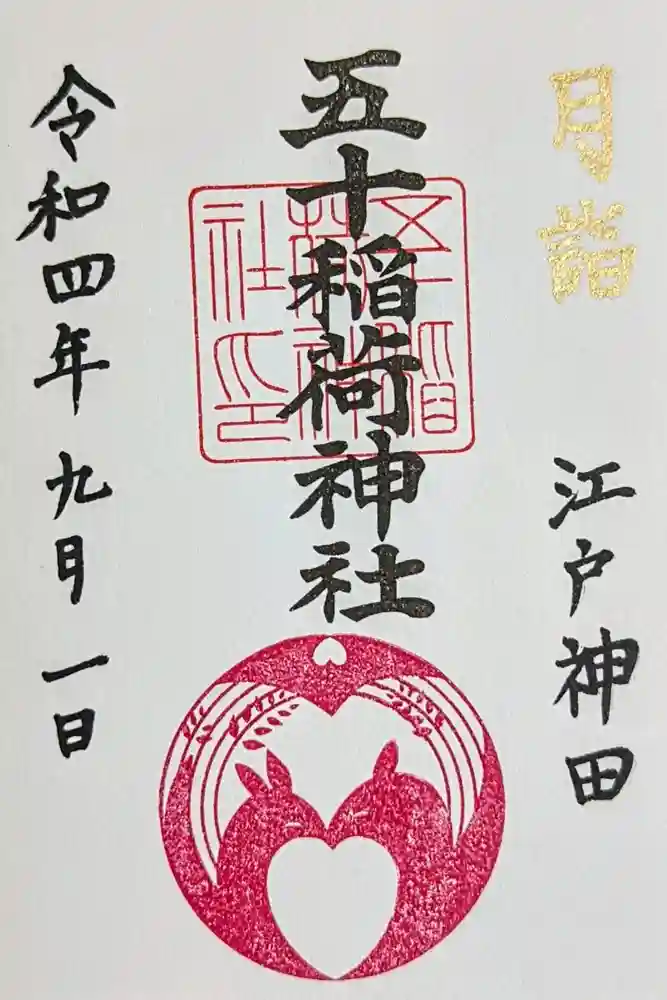 月詣
江戸神田
五十稲荷神社
五十稲
荷神
社印
令和四年九月一日